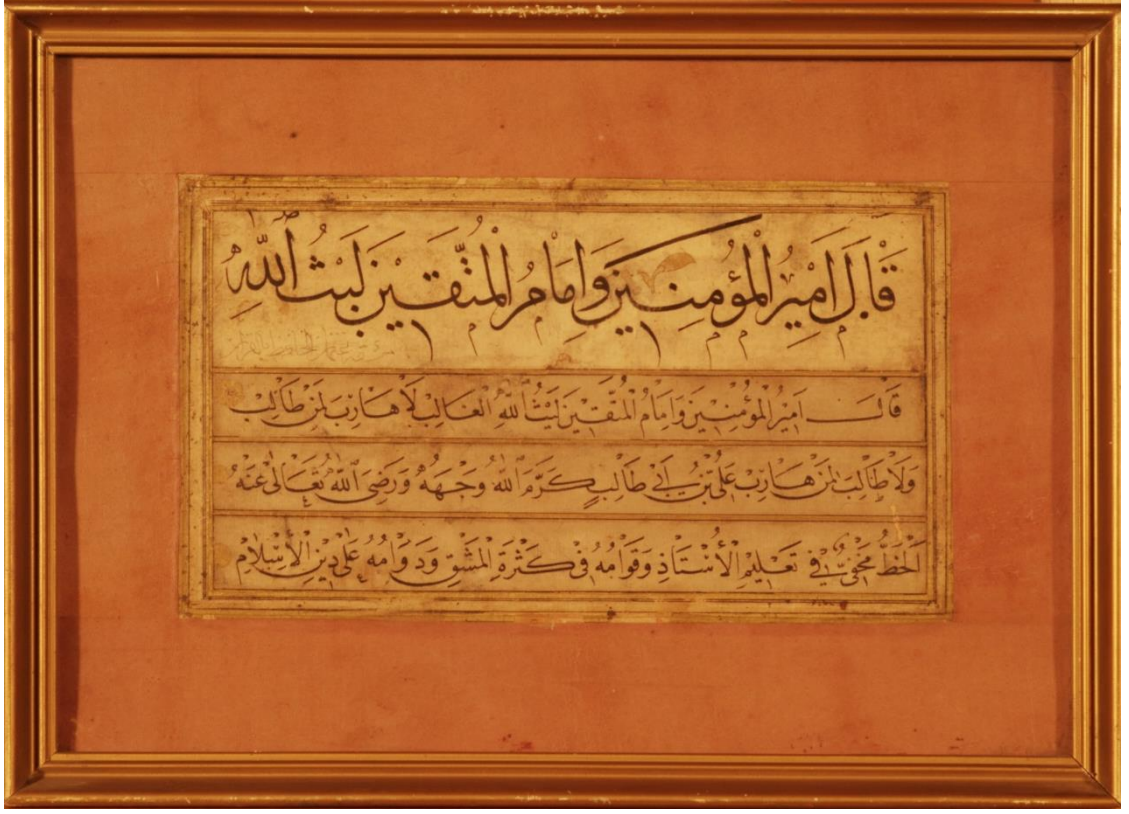 قَالَ اَمِيرُ الْمُؤْمِنِينَ وَاِمَامُ الْمُتَّقِينَ لَيْثُ اللّٰهِ
قَالَ اَمِيرُ الْمُؤْمِنِينَ وَاِمَامُ الْمُتَّقِينَ لَيْثُ اللّٰهِ الْغَالِبْ لَاْ هَارِبَ لِمَنْ طَالِبْ
وَلَاْ طَالِبَ لِمَنْ هَارِبْ عَلِىُّ بْنُ اَبِى طَالِبٍ كَرَّمَ اللّٰهُ وَجْهَهُ وَرَضِىَ اللّٰهُ تَعَالٰى عَنْهُ
اَلْخَطُّ مَخْفِىٌّ فِى تَعْلِيْمِ الْأُسْتَاذِ وَقَوَامُهُ فِى كَثْرَةِ الْمَشْقِ وَدَوَامُهُ عَلٰى دِيْنِ الْاِسْلَامِ